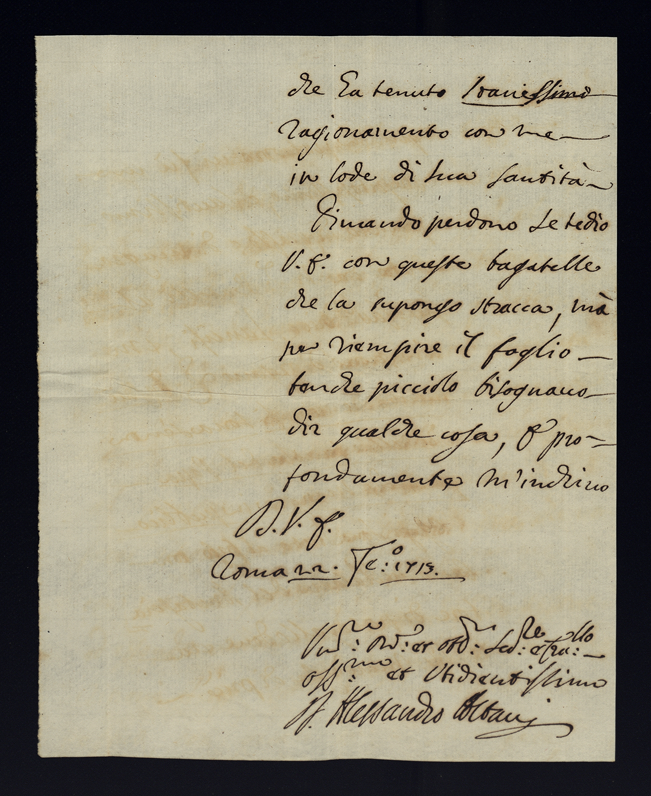 che ha tenuto bravissimo
ragionamento con me
in lode di Sua Santità
Dimando perdono se tedio
V. E. con queste bagatelle
che la supongo stracca, mà
per riempire il foglio
benche picciolo bisognava
dir qualche cosa, e pro-
fondamente m'inchino
D. V. E.
Roma 22. 1715.
et
oss.mo et Ubidientissimo
Alessandro Albani